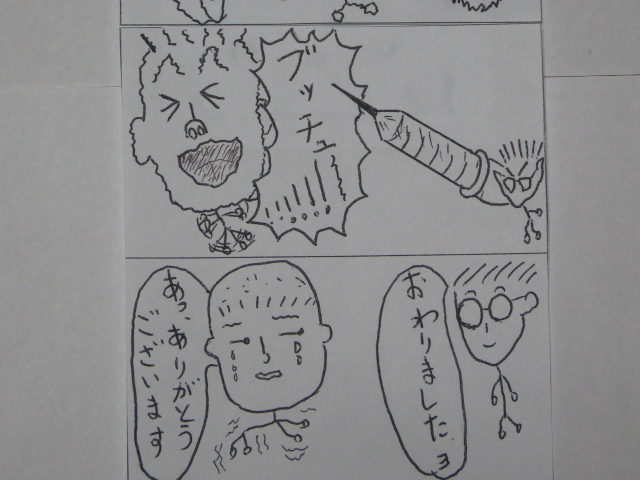 ブッチュ〜!!!!!
おわりましたョ
あっ、ありがとう
ございます